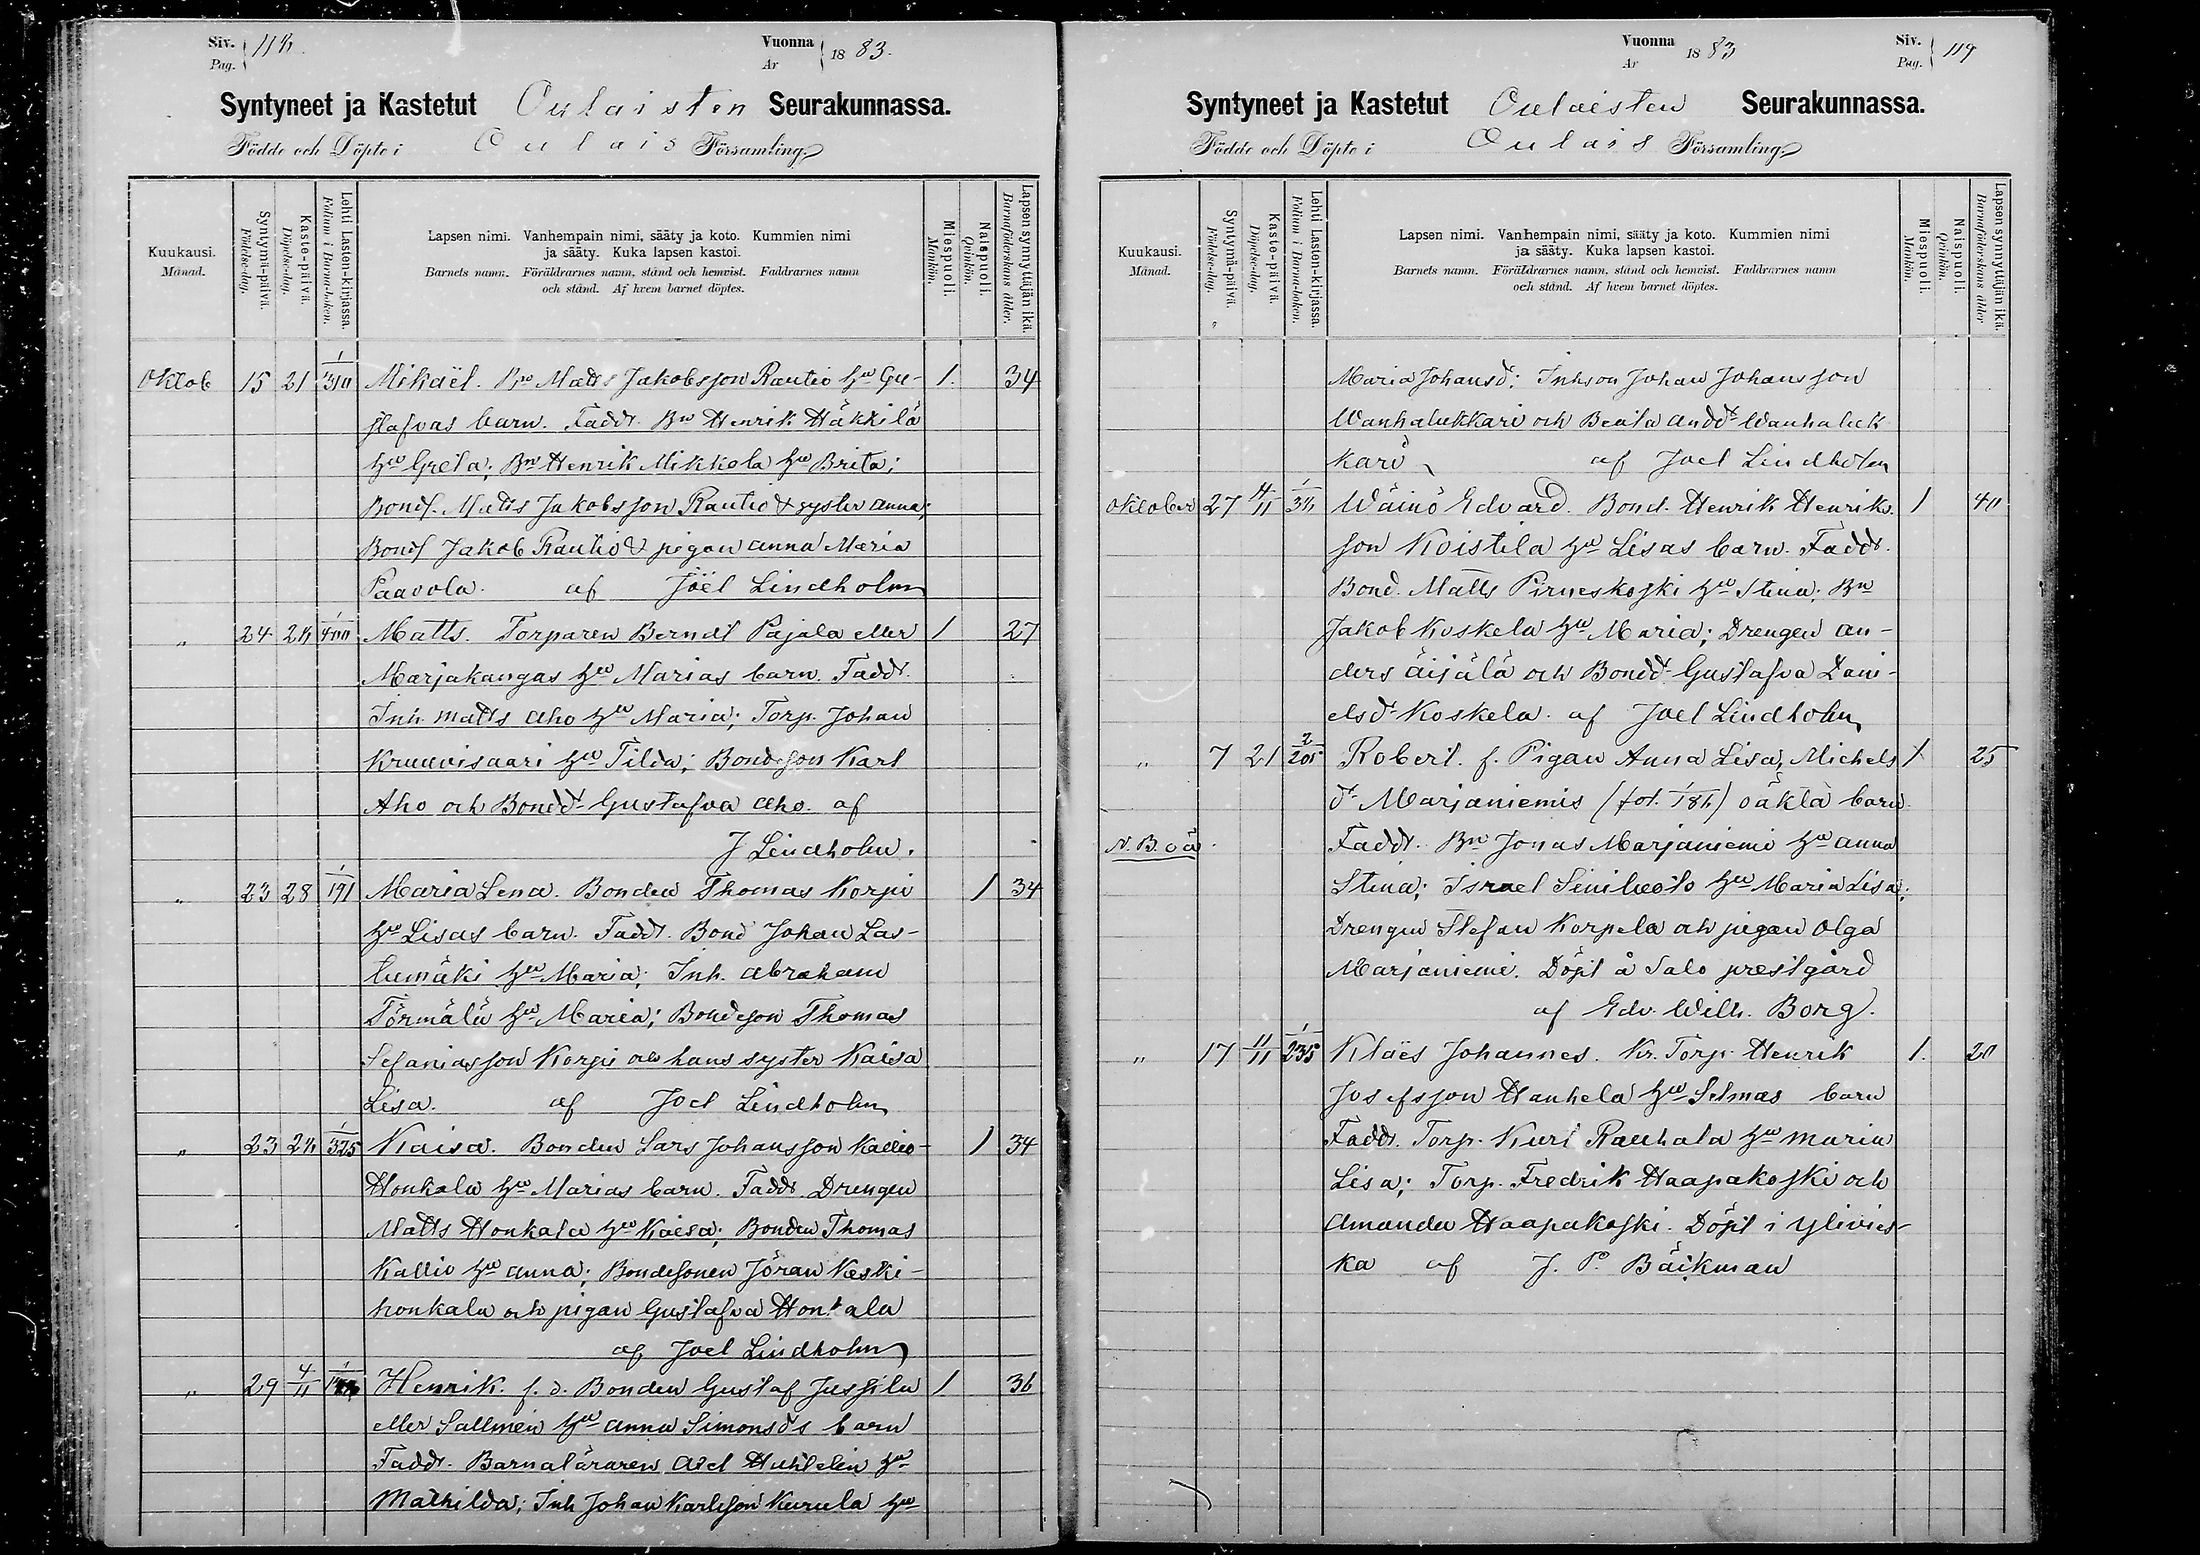 Siv. Pag. 118.
Vuonna År 1883.
Syntyneet ja Kastetut Oulaisten Seurakunnassa.
Födde och Döpte i Oulais Församling
Kuukausi. Månad.
Syntymä-päivä. Födelse-dag.
Kaste-päivä. Döpelse-dag.
Lehti Lasten-kirjassa. Folium i Barna-boken.
Lapsen nimi. Vanhempain nimi, sääty ja koto. Kummien nimi
ja sääty. Kuka lapsen kastoi.
Barnets namn. Föräldrarnes namn, stånd och hemvist. Faddrarnes namn
och stånd. Af hvem barnet döptes.
Miespuoli. Mankön.
Naispuoli. Qvinkön.
Lapsen synnyttäjän ikä. Barnaföderskans ålder.
Oktob 15 21 1/310 Mikaël. Bn Matts Jakobsson Rautio hu Gu- 1. 34
stafvas barn. Faddr. Bn Henrik Häkkilä
hu Greta; Bn Henrik Mikkola hu Brita;
Bonds. Matts Jakobsson Rautio & syster Anna;
Bonds Jakob Rautio & pigan Anna Maria
Paavola. af Joël Lindholm
" 24 28 1/400 Matts. Torparen Berndt Pajala eller 1 27
Marjakangas hu Marias barn. Faddr.
Inh. Matts Aho hu Maria; Torp. Johan
Kruuvisaari hu Tilda; Bondeson Karl
Aho och Bondd. Gustafva Aho. af
J Lindholm.
" 23 28 1/191 Maria Lena. Bonden Thomas Korpi 1 34
hu Lisas barn. Faddr. Bond Johan Las-
humäki hu Maria; Inh. Abraham
Törmälä hu Maria; Bondeson Thomas
Sefaniasson Korpi och hans syster Kaisa
Lisa. af Joel Lindholm
" 23 28 1/325 Kaisa. Bonden Lars Johansson Kallio- 1 34
Honkala hu Marias barn. Faddr Drengen
Matts Honkala hu Kaisa; Bonden Thomas
Kallio hu Anna; Bondesonen Jöran Keski-
honkala och pigan Gustafva Honkala
af Joel Lindholm
" 29 4/11 Henrik. f. d. Bonden Gustaf Jussila 1 36
eller Sallmén hu Anna Simonsds barn
Faddr. Barnaläraren Axel Huhtelin hu
Mathilda; Inh Johan Karlsson Kurula hu
Vuonna År 1883
Siv. Pag. 119
Syntyneet ja Kastetut Oulaisten Seurakunnassa.
Födde och Döpte i Oulais Församling
Kuukausi. Månad.
Syntymä-päivä. Födelse-dag.
Kaste-päivä. Döpelse-dag.
Lehti Lasten-kirjassa. Folium i Barna-boken.
Lapsen nimi. Vanhempain nimi, sääty ja koto. Kummien nimi
ja sääty. Kuka lapsen kastoi.
Barnets namn. Föräldrarnes namn, stånd och hemvist. Faddrarnes namn
och stånd. Af hvem barnet döptes.
Miespuoli. Mankön.
Naispuoli. Qvinkön.
Lapsen synnyttäjän ikä. Barnaföderskans ålder
Maria Johansd; Inhson Johan Johansson
Wanhalukkari och Beata Andd Wanhaluk
kari af Joel Lindholm
Oktober 27 4/11 1/38 Wäinö Edvard. Bond. Henrik Henriks. 1 40
son Koistila hu Lisas barn. Faddr.
Bond. Matts Pirneskoski hu Stina; Bn
Jakob Koskela hu Maria; Drengen An-
ders Äijälä och Bondd Gustafva Dani-
elsd Koskela. af Joel Lindholm
" 7 21 2/205 Robert. f. Pigan Anna Lisa, Michels 1 25
d Marjaniemis (fol. 1/184) oäkta barn
N.B. oä. Faddr. Bn Jonas Marjaniemi hu Anna
Stina; Israel Siniluoto hu Maria Lisa;
Drengen Stefan Korpela och pigan Olga
Marjaniemi. Döpt å Salo prestgård
af Edv. Wilh. Borg.
" 17 11/11 1/235 Klaës Johannes. Kr. Torp. Henrik 1. 20
Josefsson Hanhela hu Selmas barn
Faddr. Torp. Kurt Rauhala hu Maria
Lisa; Torp. Fredrik Haapakoski och
Amanda Haapakoski. Döpt i Ylivies-
ka af J. P. Bäckman